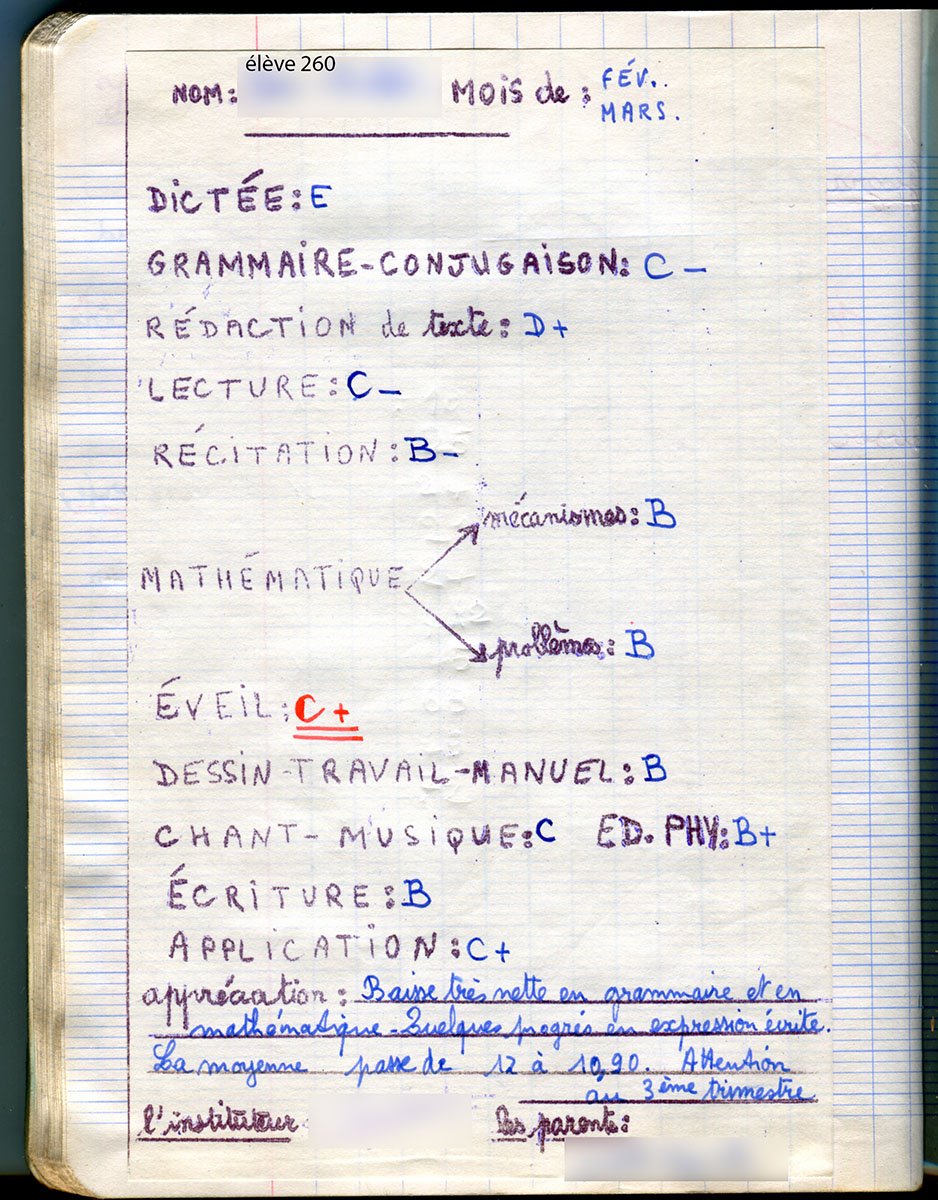 élève 260
NOM: MOIS de: FÉV.
MARS.
DICTÉE: E
GRAMMAIRE-CONJUGAISON: C-
RÉDACTION de texte: D+
LECTURE: C-
RÉCITATION: B-
mécanismes: B
MATHÉMATIQUE
problèmes: B
ÉVEIL: C+
DESSIN-TRAVAIL-MANUEL: B
CHANT-MUSIQUE: C ED. PHY: B+
ÉCRITURE: B
APPLICATION: C+
appréciation: Baisse très nette en grammaire et en
mathématique - Quelques progrés en expression écrite.
La moyenne passe de 12 à 10,90. Attention
au 3ème trimestre
l'instituteur les parents: